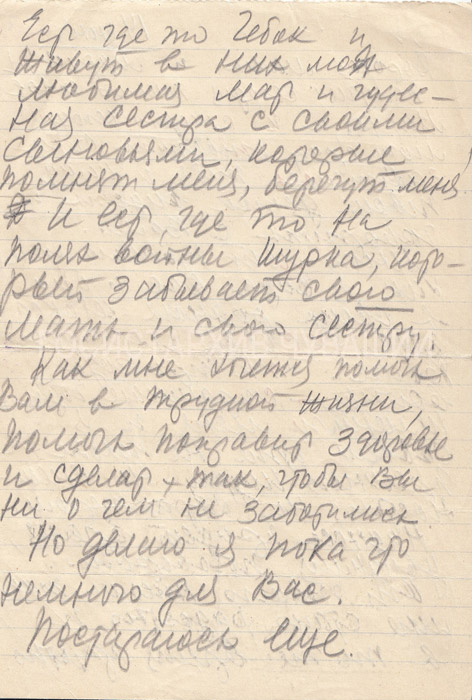 Есть где то Чебак и
живут в них моя
любимая мать и чудес-
ная сестра с своими
сыновьями, которые
помнят меня, берегут меня!
И есть, где то на
полях войны Шурка, кото-
рый забывает свою
мать и свою сестру
Как мне хочется помочь
Вам в трудной жизни,
помочь поправить здоровье
и сделать так, чтобы Вы
ни о чем не заботились
Но делаю я пока что
немного для Вас.
Постараюсь еще.